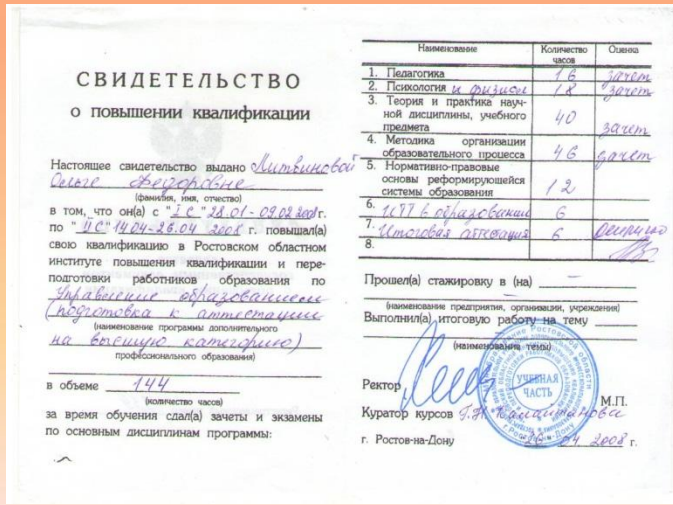 СВИДЕТЕЛЬСТВО
о повышении квалификации
Настоящее свидетельство выдано Литвиновой
Ольге Федоровне
(фамилия, имя, отчество)
в том, что он(а) с "I С" 28.01 - 09.02 2008 г.
по "II С" 14.04-26.04 2008 г. повышал(а)
свою квалификацию в Ростовском областном
институте повышения квалификации и пере-
подготовки работников образования по
Управление образованием
(подготовка к аттестации
(наименование программы дополнительного
на высшую категорию)
профессионального образования)
в объеме 144
(количество часов)
за время обучения сдал(а) зачеты и экзамены
по основным дисциплинам программы:
Наименование Количество часов Оценка
1. Педагогика 16 зачет
2. Психология и физиол 18 зачет
3. Теория и практика науч-
ной дисциплины, учебного
предмета 40 зачет
4. Методика организации
образовательного процесса 46 зачет
5. Нормативно-правовые
основы реформирующейся
системы образования 12
6. ИТ в образовании 6
7. Итоговая аттестация 6 Отлично
8.
Прошел(а) стажировку в (на) —
(наименование предприятия, организации, учреждения)
Выполнил(а) итоговую работу на тему
(наименование темы)
Ректор
УЧЕБНАЯ
ЧАСТЬ
М.П.
Куратор курсов Г.Н.
г. Ростов-на-Дону 26 04 2008 г.